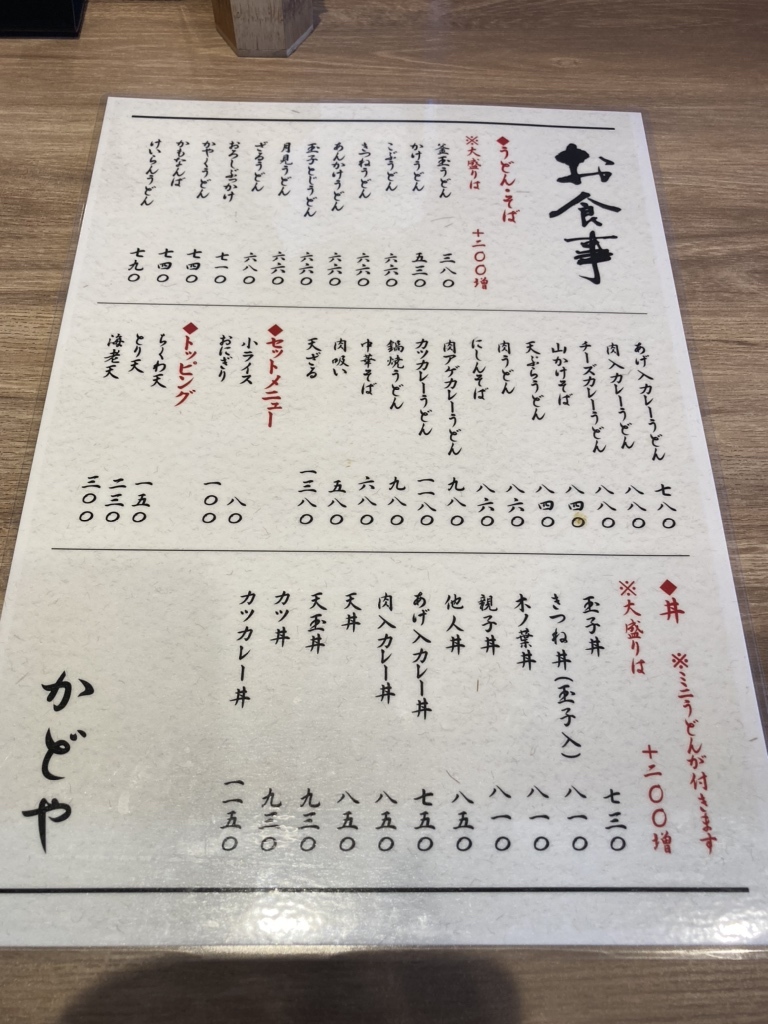 お食事
◆うどん・そば
※大盛りは +二〇〇増
釜玉うどん 三八〇
かけうどん 五三〇
こぶうどん 六六〇
きつねうどん 六六〇
あんかけうどん 六六〇
玉子とじうどん 六六〇
月見うどん 六六〇
ざるうどん 六八〇
おろしぶっかけ 七一〇
かやくうどん 七四〇
かもなんば 七四〇
けいらんうどん 七九〇
あげ入カレーうどん 七八〇
肉入カレーうどん 八八〇
チーズカレーうどん 八八〇
山かけそば 八四〇
天ぷらうどん 八四〇
肉うどん 八六〇
にしんそば 八六〇
肉アゲカレーうどん 九八〇
カツカレーうどん 一一八〇
鍋焼うどん 九八〇
中華そば 六八〇
肉吸い 五八〇
天ざる 一三八〇
◆セットメニュー
小ライス 八〇
おにぎり 一〇〇
◆トッピング
ちくわ天 一五〇
とり天 二三〇
海老天 三〇〇
◆丼 ※ミニうどんが付きます
※大盛りは +二〇〇増
玉子丼 七三〇
きつね丼(玉子入) 八一〇
木ノ葉丼 八一〇
親子丼 八一〇
他人丼 八五〇
あげ入カレー丼 七五〇
肉入カレー丼 八五〇
天丼 八五〇
天玉丼 九三〇
カツ丼 九三〇
カツカレー丼 一一五〇
かどや